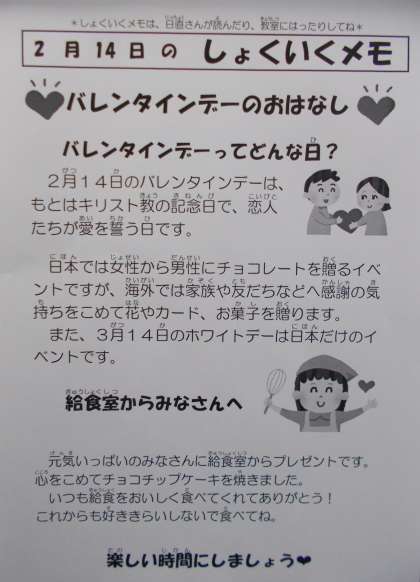 ＊しょくいくメモは、日直さんが読んだり、教室にはったりしてね＊
2月14日のしょくいくメモ
バレンタインデーのおはなし
バレンタインデーってどんな日？
２月１４日のバレンタインデーは、
もとはキリスト教の記念日で、恋人
たちが愛を誓う日です。
日本では女性から男性にチョコレートを贈るイベ
ントですが、海外では家族や友だちなどへ感謝の気
持ちをこめて花やカード、お菓子を贈ります。
また、３月１４日のホワイトデーは日本だけのイ
ベントです。
給食室からみなさんへ
元気いっぱいのみなさんに給食室からプレゼントです。
心をこめてチョコチップケーキを焼きました。
いつも給食をおいしく食べてくれてありがとう！
これからも好ききらいしないで食べてね。
楽しい時間にしましょう❤